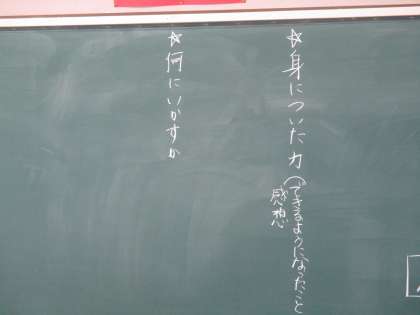 ☆身についた力(できるようになったこと
感想
☆何にいかすか